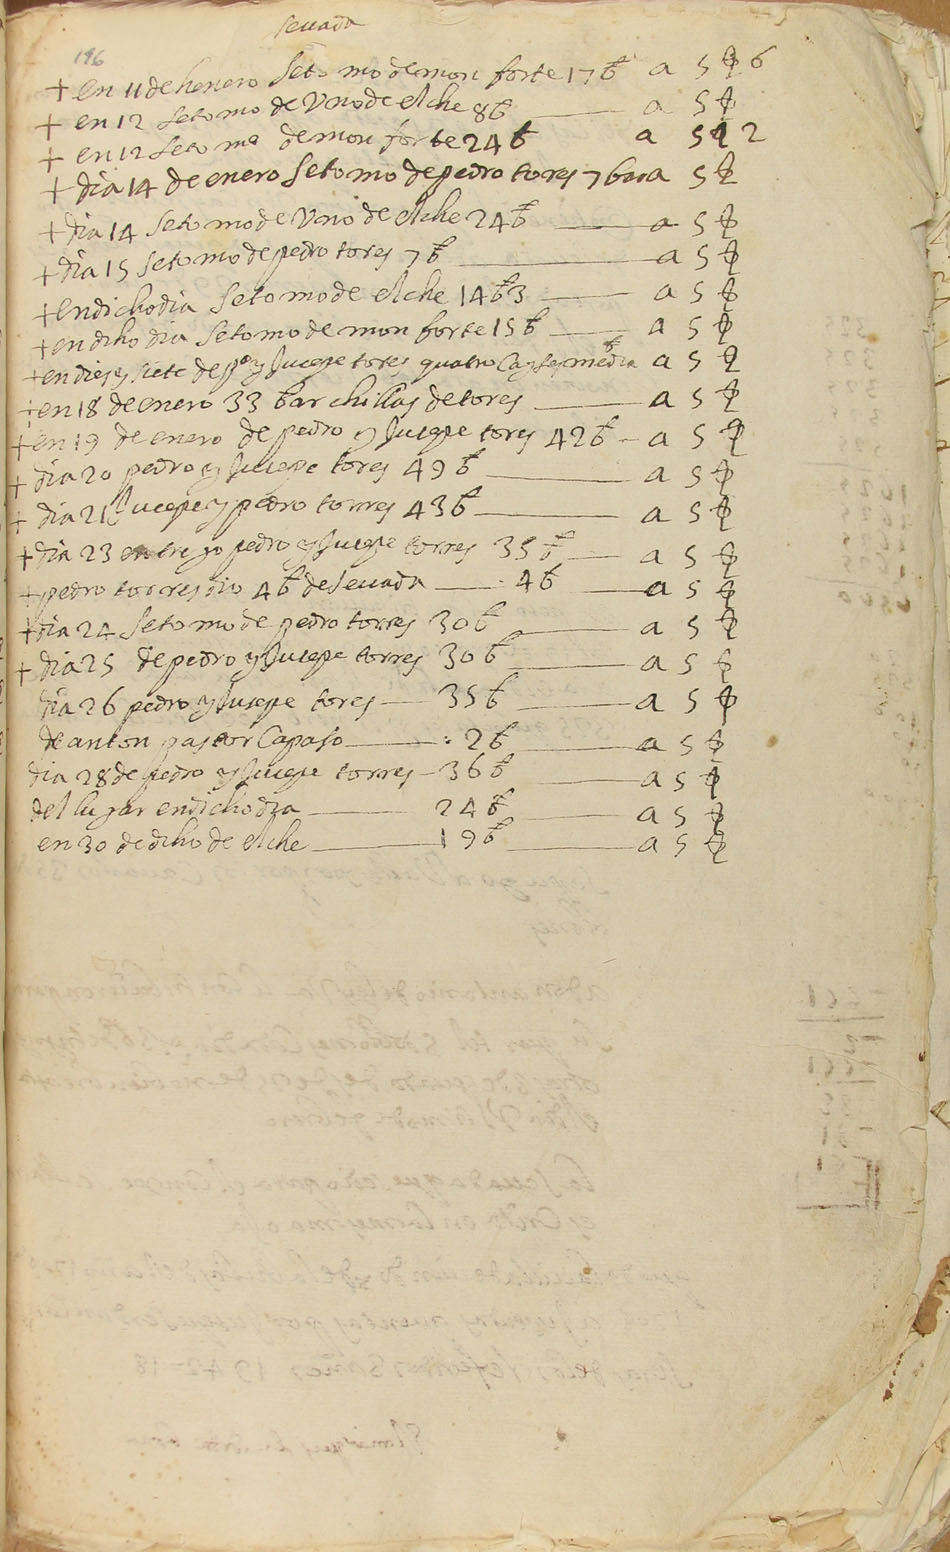 sevada
196
+ en 11 de henero se tomo de mon forte 17 b a 5 ɸ 6
+ en 12 se tomo de Uno de elche 8 b a 5 ɸ
+ en 12 se tomo de mon forte 24 b a 5 ɸ 2
+ dia 14 de enero se tomo de pedro tores 7 bar a 5 ɸ
+ dia 14 se tomo de Uno de elche 24 b a 5 ɸ
+ dia 15 se tomo de pedro tores 7 b a 5 ɸ
+ en dicho dia se tomo de elche 14 b 3 a 5 ɸ
+ en diho dia se tomo de mon forte 15 b a 5 ɸ
+ en dies y siete de po y Jusepe tores quatro media a 5 ɸ
+ en 18 de enero 33 barchillas de tores a 5 ɸ
+ en 19 de enero de pedro y Jusepe tores 42 b a 5 ɸ
+ dia 20 pedro y Jusepe tores 49 b a 5 ɸ
+ dia 21 Jucepe y pedro torres 43 b a 5 ɸ
+ dia 23 entrego pedro y Jusepe torres 35 b a 5 ɸ
+ pedro torres dio 4 b de sevada 4 b a 5 ɸ
+ dia 24 se tomo de pedro torres 30 b a 5 ɸ
+ dia 25 de pedro y Jusepe torres 30 b a 5 ɸ
dia 26 pedro y Jusepe tores 35 b a 5 ɸ
de anton pastor Capaso 2 b a 5 ɸ
dia 28 de pedro y Jusepe torres 36 b a 5 ɸ
del lugar en dicho dia 24 b a 5 ɸ
en 30 de diho de elche 19 b a 5 ɸ